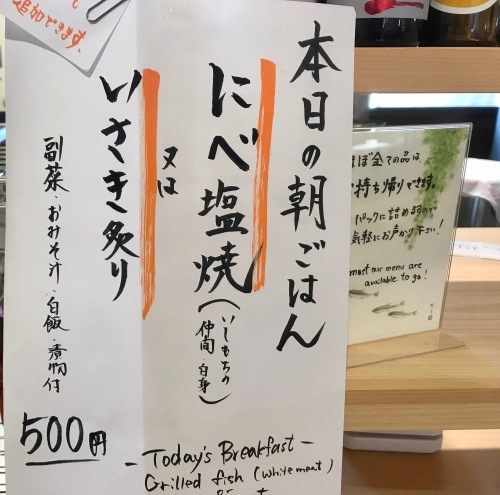 追加できます。
本日の朝ごはん
にべ塩焼(いしもちの
仲間・白身)
又は
いさき炙り
副菜・おみそ汁・白飯・漬物付
500円
-Today's Breakfast-
Grilled fish (white meat)
ほぼ全ての品は、
持ち帰りできます。
パックに詰めますので
気軽にお声かけ下さい!
most our menu are
available to go!